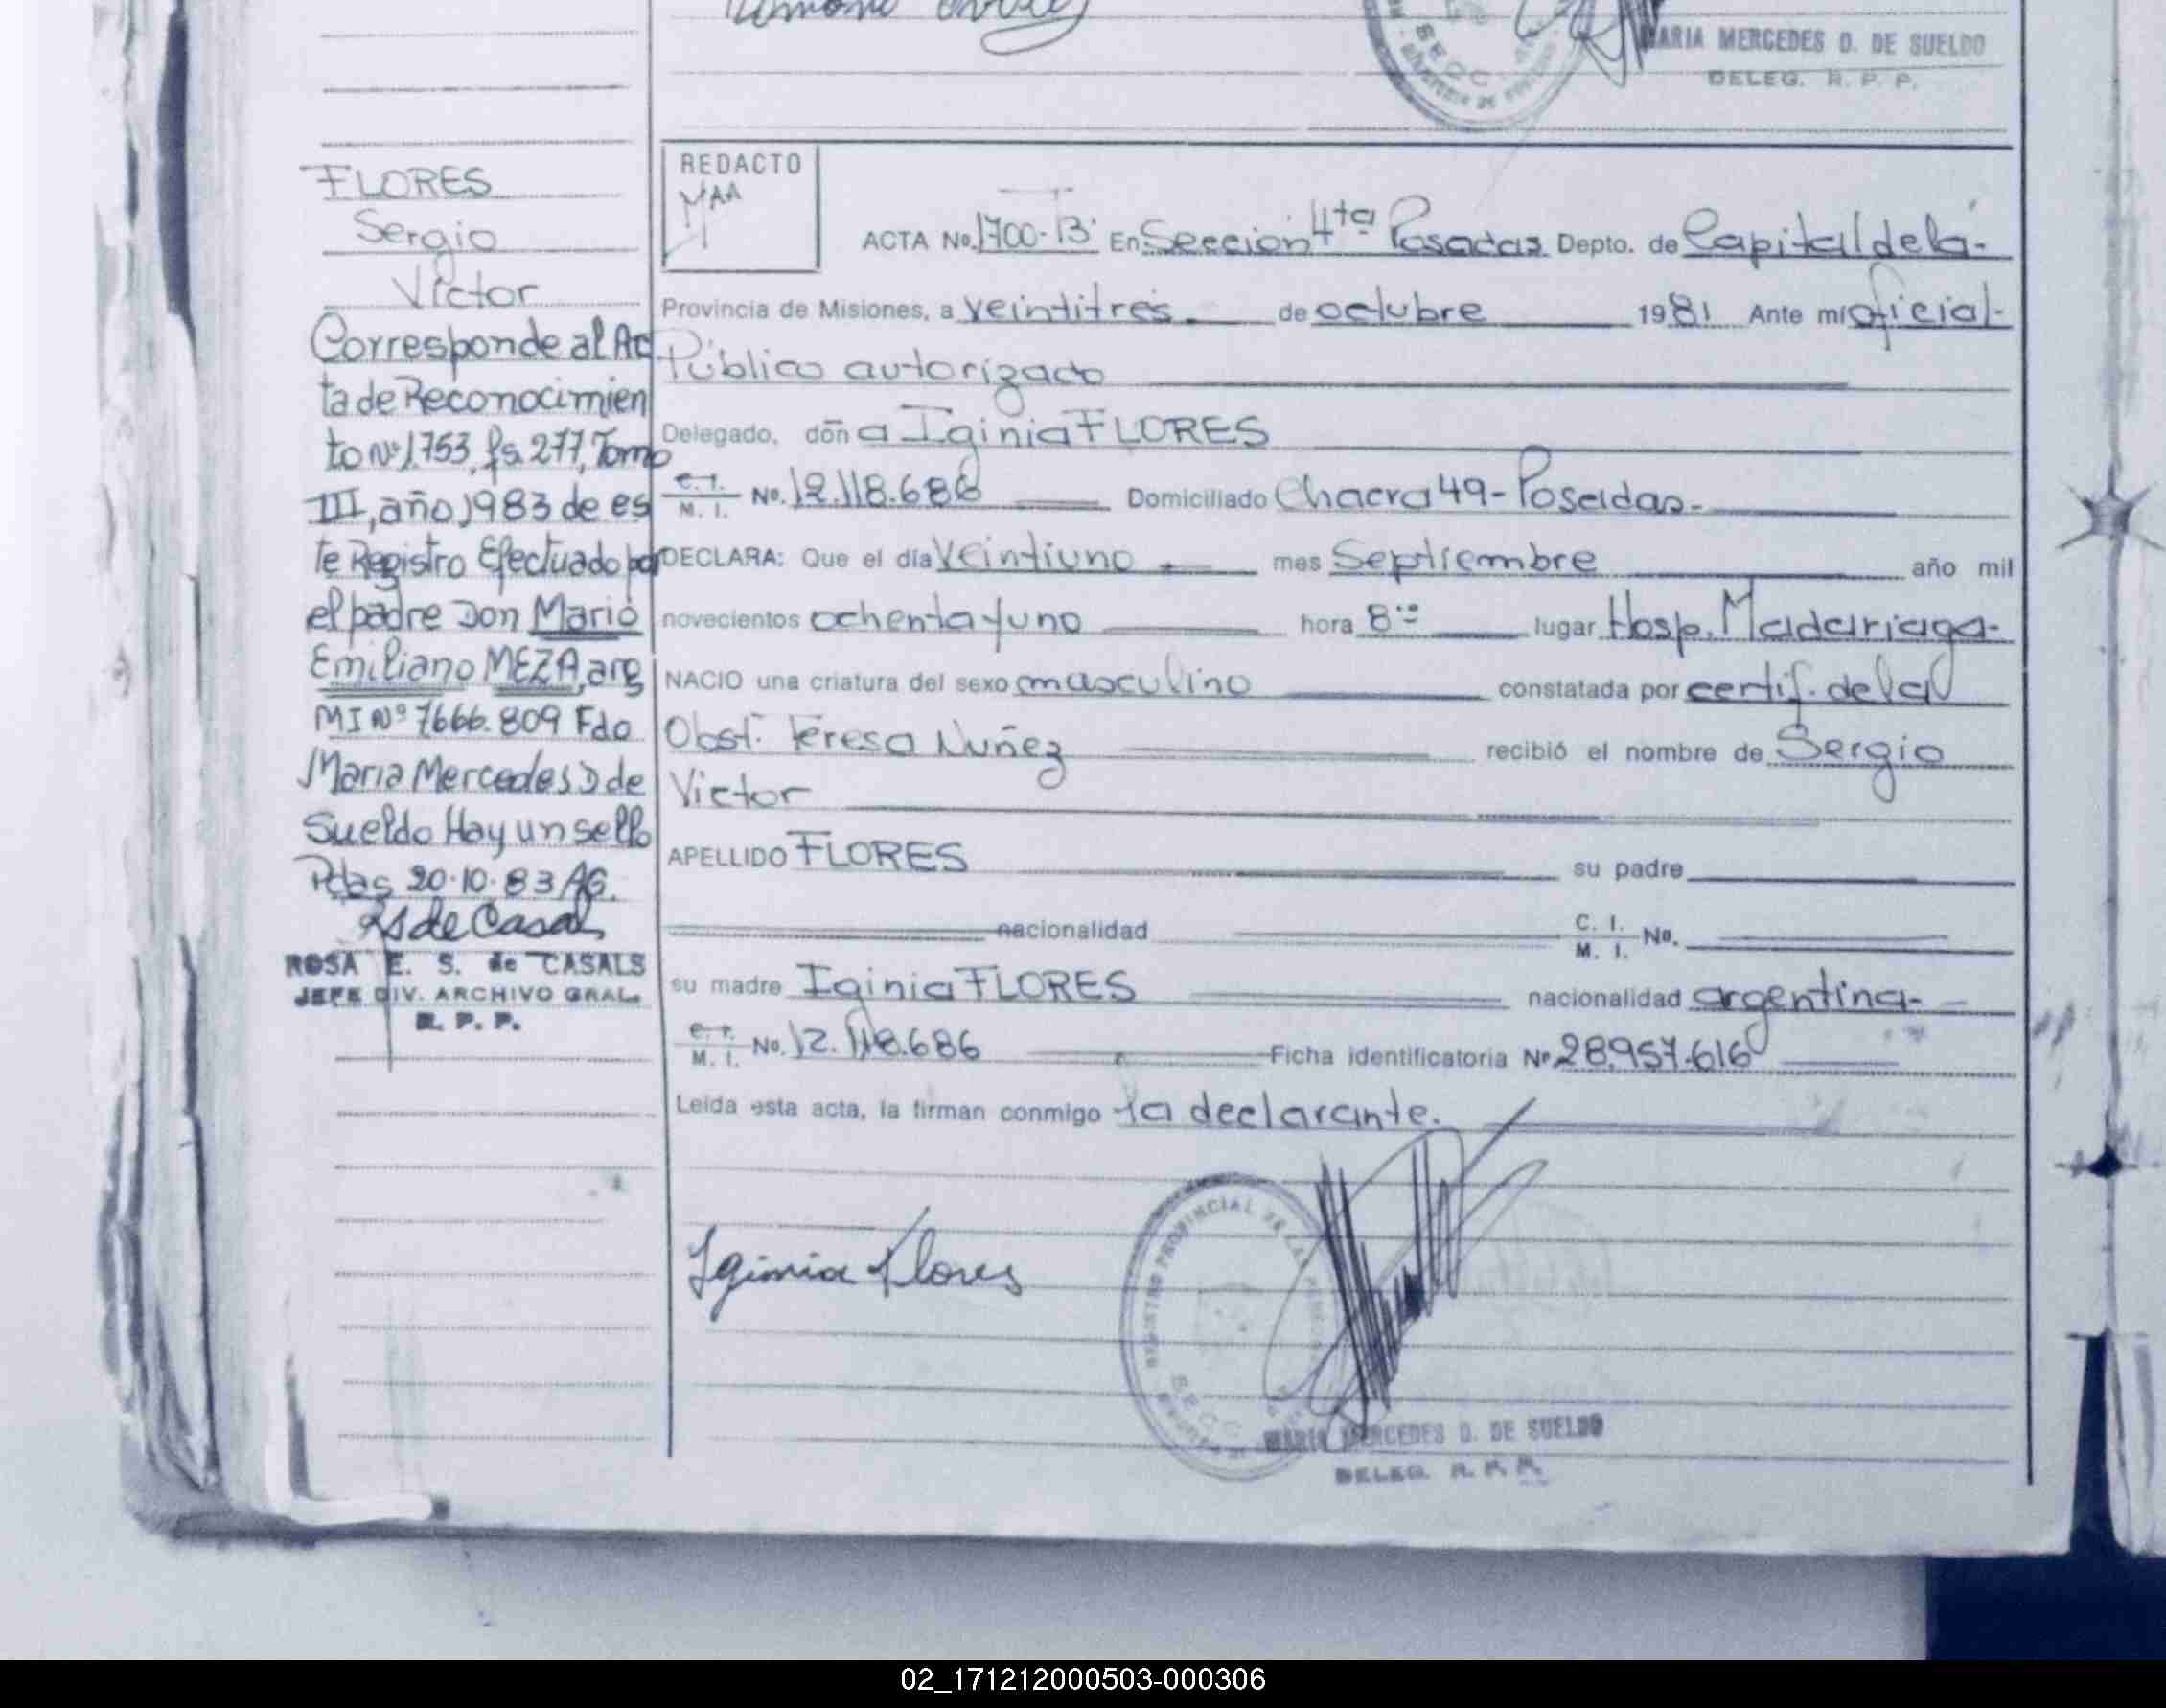 MARIA MERCEDES D. DE SUELDO
DELEG. R. P. P.
FLORES
Sergio
Víctor
Corresponde al Ac
ta de Reconocimien
to Nº 1.753, fs. 277, Tomo
III, año 1983 de es
te Registro Efectuado por
el padre Don Mario
Emiliano MEZA, arg
MI Nº 7666.809 Fdo
Maria Mercedes D de
Sueldo Hay un sello
Pdas 20.10.83 AG.
RS de Casals
ROSA E. S. de CASALS
JEFE DIV. ARCHIVO GRAL.
R. P. P.
REDACTO
MAA
ACTA No. 1700-B En Sección 4ta Posadas Depto. de Capital de la-
Provincia de Misiones, a veintitres de octubre 1981 Ante mí oficial-
Público autorizado
Delegado, doña Iginia FLORES
C. I. M. I. No. 12.118.686 Domiciliado Chacra 49-Posadas-
DECLARA: Que el día veintiuno mes Septiembre año mil
novecientos ochenta y uno hora 8:00 lugar Hosp. Madariaga-
NACIO una criatura del sexo masculino constatada por certif. de la
Obst. Teresa Nuñez recibió el nombre de Sergio
Victor
APELLIDO FLORES su padre
nacionalidad C. I. M. I. No.
su madre Iginia FLORES nacionalidad argentina-
C. I. M. I. No. 12.118.686 Ficha identificatoria Nº 28.957.616
Leída esta acta, la firman conmigo la declarante.
Iginia Flores
REGISTRO PROVINCIAL DE LAS
MARIA MERCEDES D. DE SUELDO
DELEG. R. P. P.
02_171212000503-000306